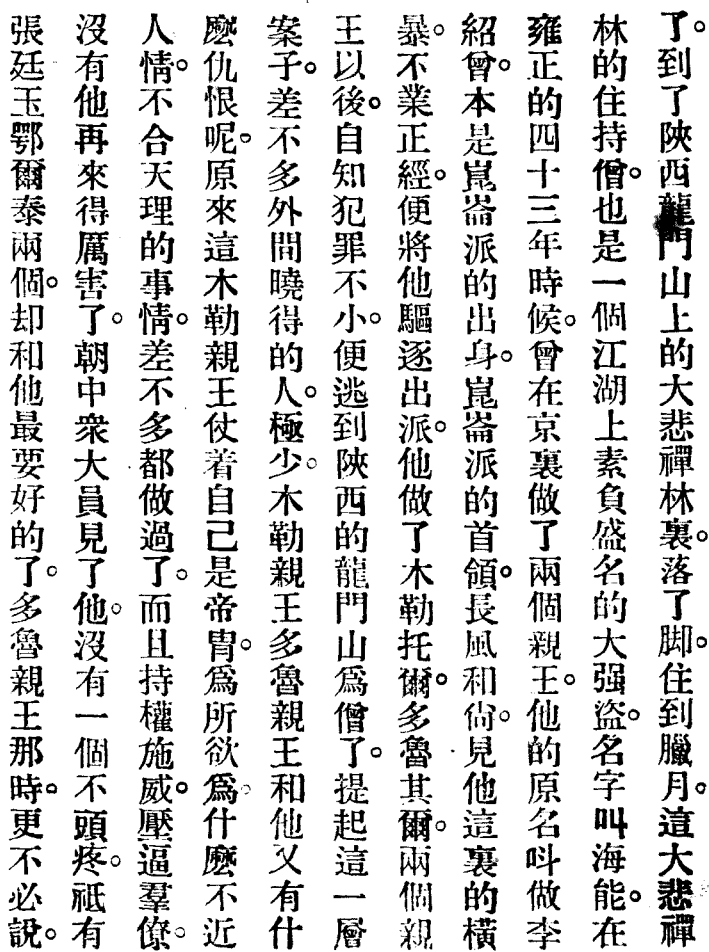 了。到了陝西龍門山上的大悲禪林裏。落了脚。住到臘月。這大悲禪
林的住持僧。也是一個江湖上素負盛名的大强盜。名字叫海能。在
雍正的四十三年時候。曾在京裏做了兩個親王。他的原名呌做李
紹曾。本是崑崙派的出身。崑崙派的首領。長風和尙。見他這裏的橫
暴。不業正經。便將他驅逐出派。他做了木勒托爾。多魯其爾。兩個親
王以後。自知犯罪不小。便逃到陝西的龍門山爲僧了。提起這一層
案子。差不多外間曉得的人。極少。木勒親王多魯親王和他又有什
麽仇恨呢。原來這木勒親王仗着自己是帝胄。爲所欲爲。什麽不近
人情。不合天理的事情。差不多都做過了。而且持權施威。壓逼羣僚。
沒有他再來得厲害了。朝中衆大員見了他。沒有一個不頭疼。祇有
張廷玉鄂爾泰兩個。却和他最要好的了。多魯親王那時。更不必說。